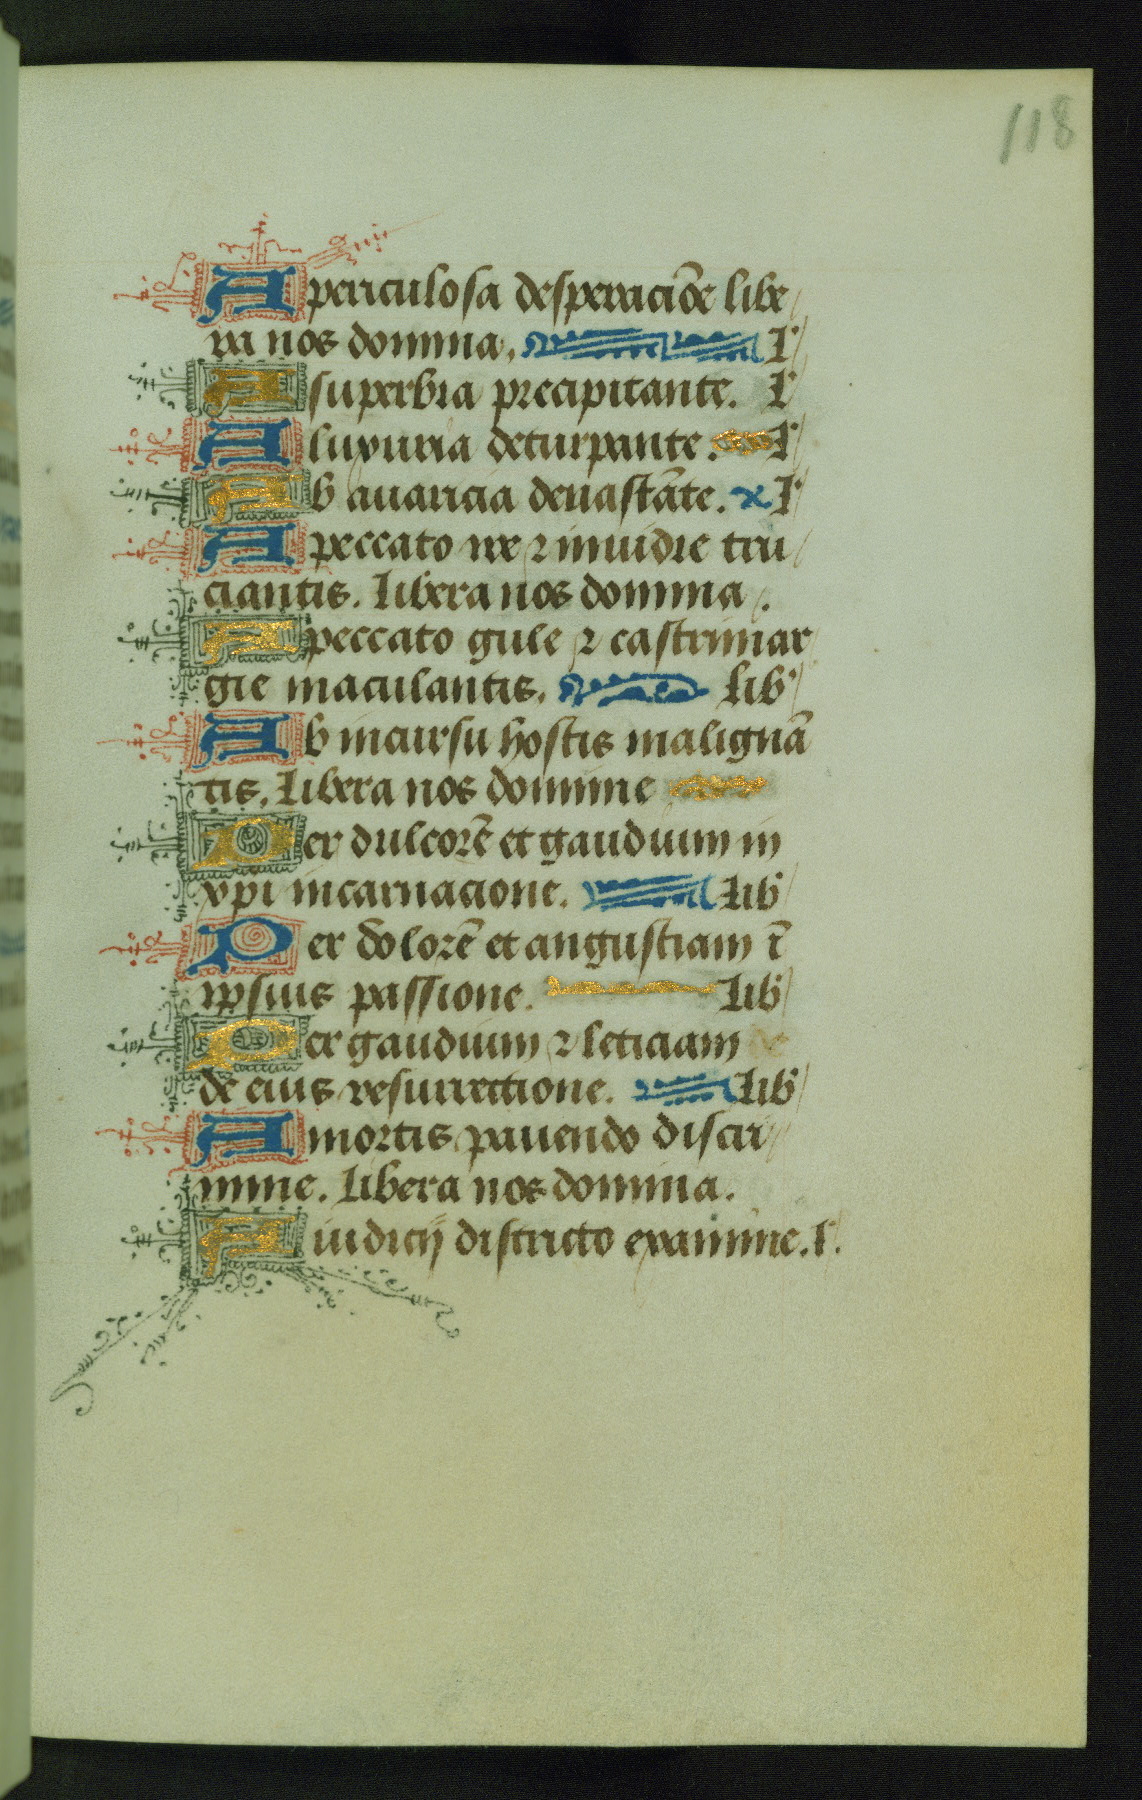 118
A periculosa desperaciõe libe
ra nos domina. l'
A superbia precipitante. l'
A luxuria deturpante. l'
Ab auaricia deuastãte. l'
A peccato ire ⁊ inuidie tru
ciantis. Libera nos domina.
A peccato gule ⁊ castrimar
gie maculantis. Lib'
Ab incursu hostis malignã
tis. Libera nos domine
Per dulcorẽ et gaudium in
xpi incarnacione. Lib'
Per dolorẽ et angustiam ĩ
ipsius passione. Lib'
Per gaudium ⁊ leticiam de
de eius resurrectione. Lib'
A mortis pauendo discri
mine. Libera nos domina.
A iudicij districto examine. l'.